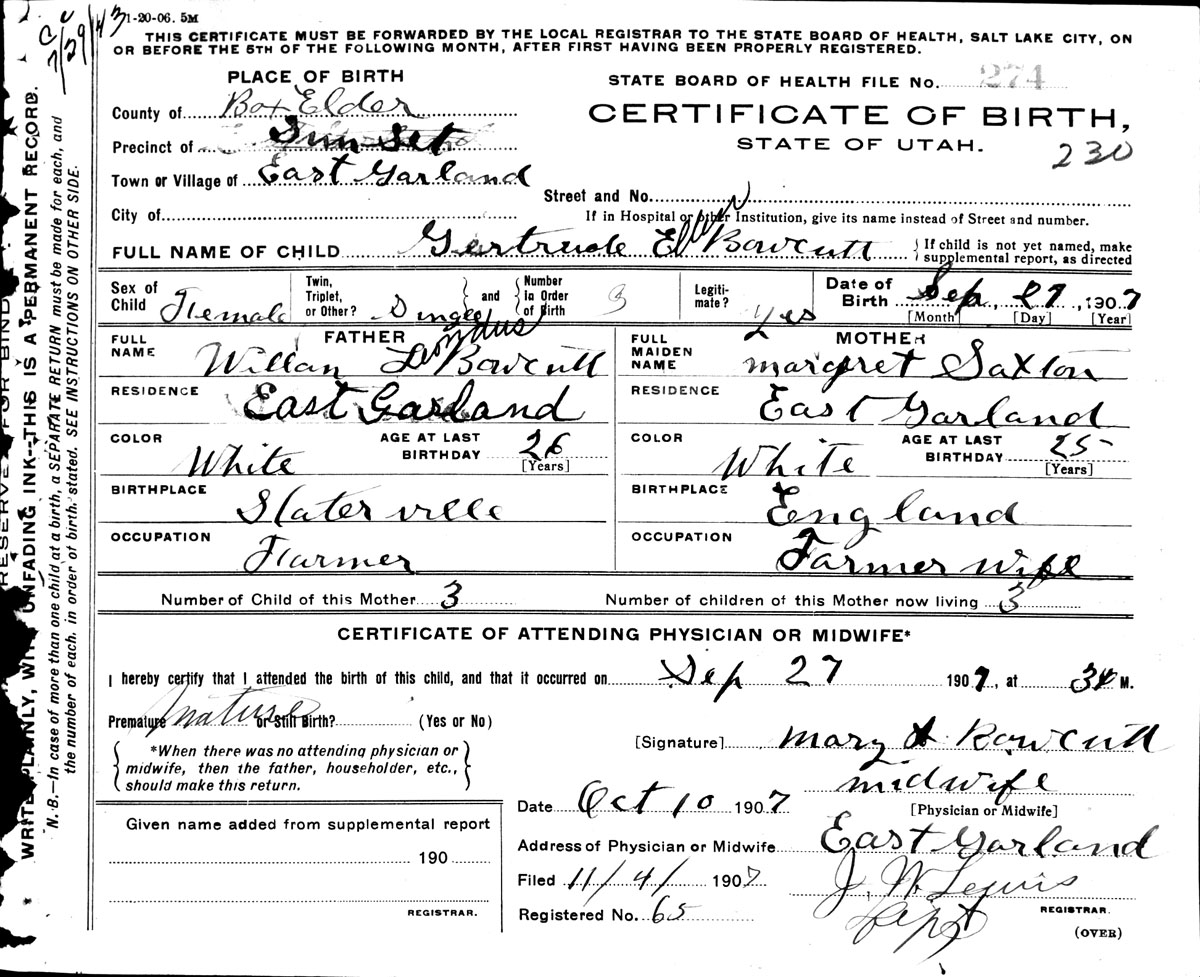 C U 7/29/43
1-20-06. 5M
THIS CERTIFICATE MUST BE FORWARDED BY THE LOCAL REGISTRAR TO THE STATE BOARD OF HEALTH, SALT LAKE CITY, ON
OR BEFORE THE 5TH OF THE FOLLOWING MONTH, AFTER FIRST HAVING BEEN PROPERLY REGISTERED.
PLACE OF BIRTH
STATE BOARD OF HEALTH FILE No. 274
County of Box Elder
CERTIFICATE OF BIRTH,
Precinct of Sun Set
STATE OF UTAH.
230
Town or Village of East Garland
Street and No.
City of
If in Hospital or other Institution, give its name instead of Street and number.
FULL NAME OF CHILD Gertrude Ellen Bowcutt
If child is not yet named, make
supplemental report, as directed
Sex of Child Female
Twin, Triplet, or Other? Single
and Number in Order of Birth 3
Legiti-mate? Yes
Date of Birth Sep. 27, 1907
[Month] [Day] [Year]
FATHER
FULL NAME Willan Leonidus Bowcutt
RESIDENCE East Garland
COLOR White
AGE AT LAST BIRTHDAY 26
[Years]
BIRTHPLACE Slaterville
OCCUPATION Farmer
MOTHER
FULL MAIDEN NAME Margret Saxton
RESIDENCE East Garland
COLOR White
AGE AT LAST BIRTHDAY 25
[Years]
BIRTHPLACE England
OCCUPATION Farmer wife
Number of Child of this Mother 3
Number of children of this Mother now living 3
CERTIFICATE OF ATTENDING PHYSICIAN OR MIDWIFE*
I hereby certify that I attended the birth of this child, and that it occurred on Sep 27 1907, at 34 M.
Premature mature or Still Birth? (Yes or No)
*When there was no attending physician or
midwife, then the father, householder, etc.,
should make this return.
[Signature] Mary A Bowcutt
midwife
[Physician or Midwife]
Date Oct 10 1907
Address of Physician or Midwife East Garland
Filed 11/4/ 1907
J. W. Lewis
REGISTRAR.
Registered No. 65
(OVER)
Given name added from supplemental report
190
REGISTRAR.
RESERVE FOR BIND
WRITE PLAINLY, WITH UNFADING INK--THIS IS A PERMANENT RECORD.
N. B.—In case of more than one child at a birth, a SEPARATE RETURN must be made for each, and
the number of each, in order of birth, stated. SEE INSTRUCTIONS ON OTHER SIDE.